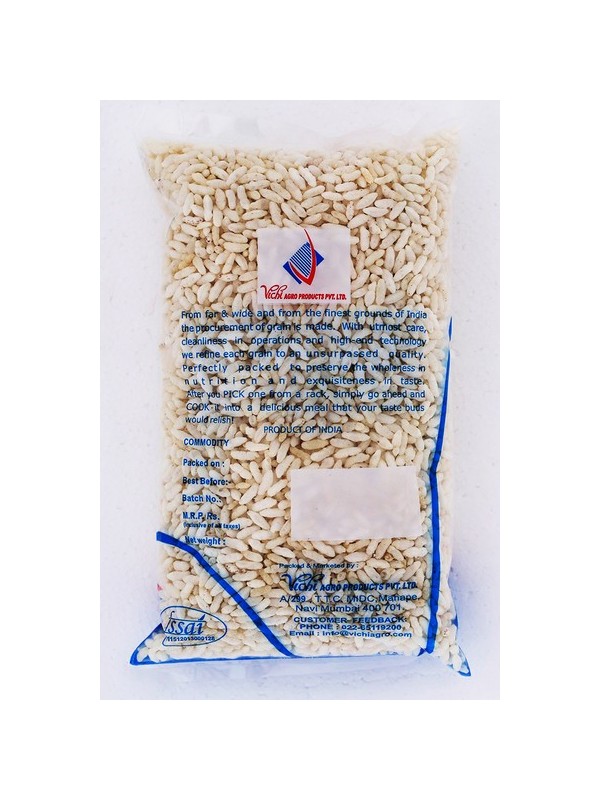 Vichi AGRO PRODUCTS PVT. LTD.
From far & wide and from the finest grounds of India
the procurement of grain is made. With utmost care,
cleanliness in operations and high-end technology
we refine each grain to an unsurpassed quality.
Perfectly packed to preserve the wholeness in
nutrition and exquisiteness in taste.
After you PICK one from a rack, simply go ahead and
COOK it into a delicious meal that your taste buds
would relish!
PRODUCT OF INDIA
COMMODITY
Packed on :
Best Before:
Batch No.:
M.R.P. Rs.
(Inclusive of all taxes)
Net weight :
Packed & Marketed by :
Vichi AGRO PRODUCTS PVT. LTD.
A/299, T.T.C. MIDC, Mahape,
Navi Mumbai 400 701.
CUSTOMER FEEDBACK:
PHONE : 022-65119200
Email : info@vichiagro.com
fssai
11512013000128